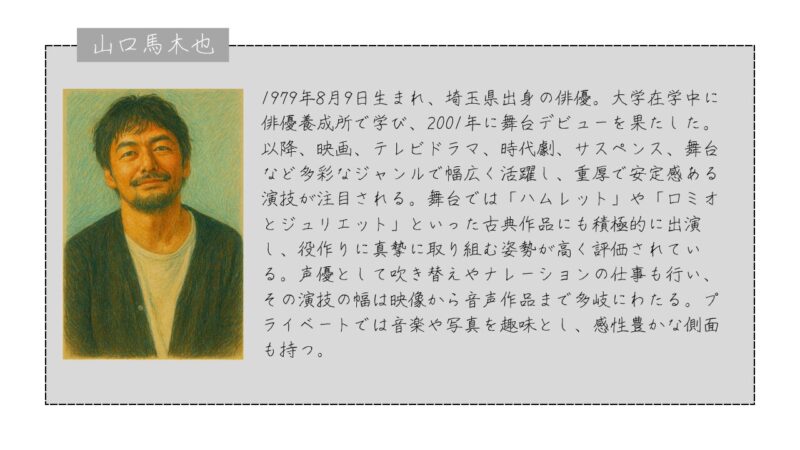 山口馬木也
1979年8月9日生まれ、埼玉県出身の俳優。大学在学中に
俳優養成所で学び、2001年に舞台デビューを果たした。
以降、映画、テレビドラマ、時代劇、サスペンス、舞台
など多彩なジャンルで幅広く活躍し、重厚で安定感ある
演技が注目される。舞台では「ハムレット」や「ロミオ
とジュリエット」といった古典作品にも積極的に出演
し、役作りに真摯に取り組む姿勢が高く評価されてい
る。声優として吹き替えやナレーションの仕事も行い、
その演技の幅は映像から音声作品まで多岐にわたる。プ
ライベートでは音楽や写真を趣味とし、感性豊かな側面
も持つ。